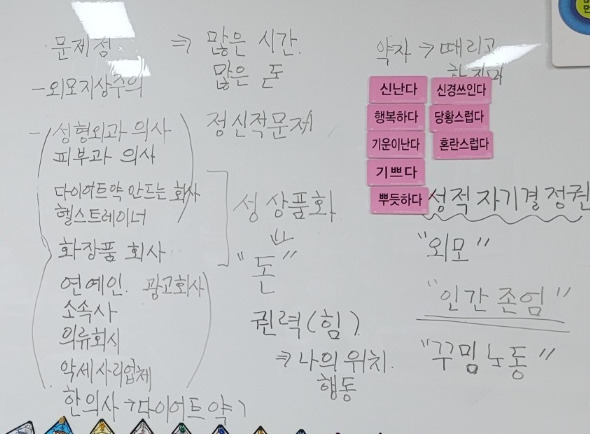 문제점 ⇒ 많은 시간.
많은 돈
정신적문제
- 외모지상주의
- 성형외과 의사
피부과 의사
다이어트약 만드는 회사
헬스트레이너
화장품 회사
연예인. 광고회사
소속사
의류회사
악세사리업체
한의사→다이어트약
성 상품화
⇓
"돈"
권력(힘)
⇒ 나의 위치.
행동
약자 → 때리고
신난다
신경쓰인다
행복하다
당황스럽다
기운이난다
혼란스럽다
기쁘다
뿌듯하다
성적자기결정권
"외모"
"인간존엄"
"꾸밈노동"